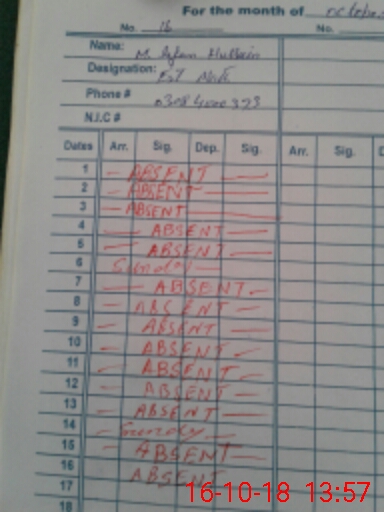 For the month of October
No. 16 No.
Name: M. Hussain
Designation:
Phone # 0308 4000323
N.I.C #
Dates Arr. Sig. Dep. Sig. Arr. Sig.
1 ABSENT
2 ABSENT
3 ABSENT
4 ABSENT
5 ABSENT
6 Sunday
7 ABSENT
8 ABSENT
9 ABSENT
10 ABSENT
11 ABSENT
12 ABSENT
13 ABSENT
14 Sunday
15 ABSENT
16 ABSENT
17
18
16-10-18 13:57